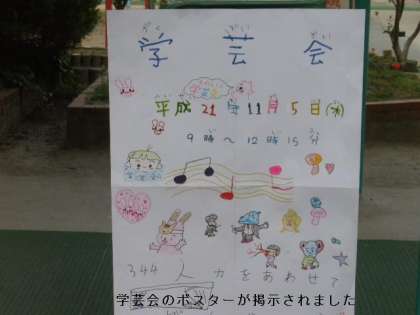 がく げい かい
学 芸 会
学芸会
平成21年11月5日(木)
9時～12時15分
344人 力をあわせて
学芸会のポスターが掲示されました